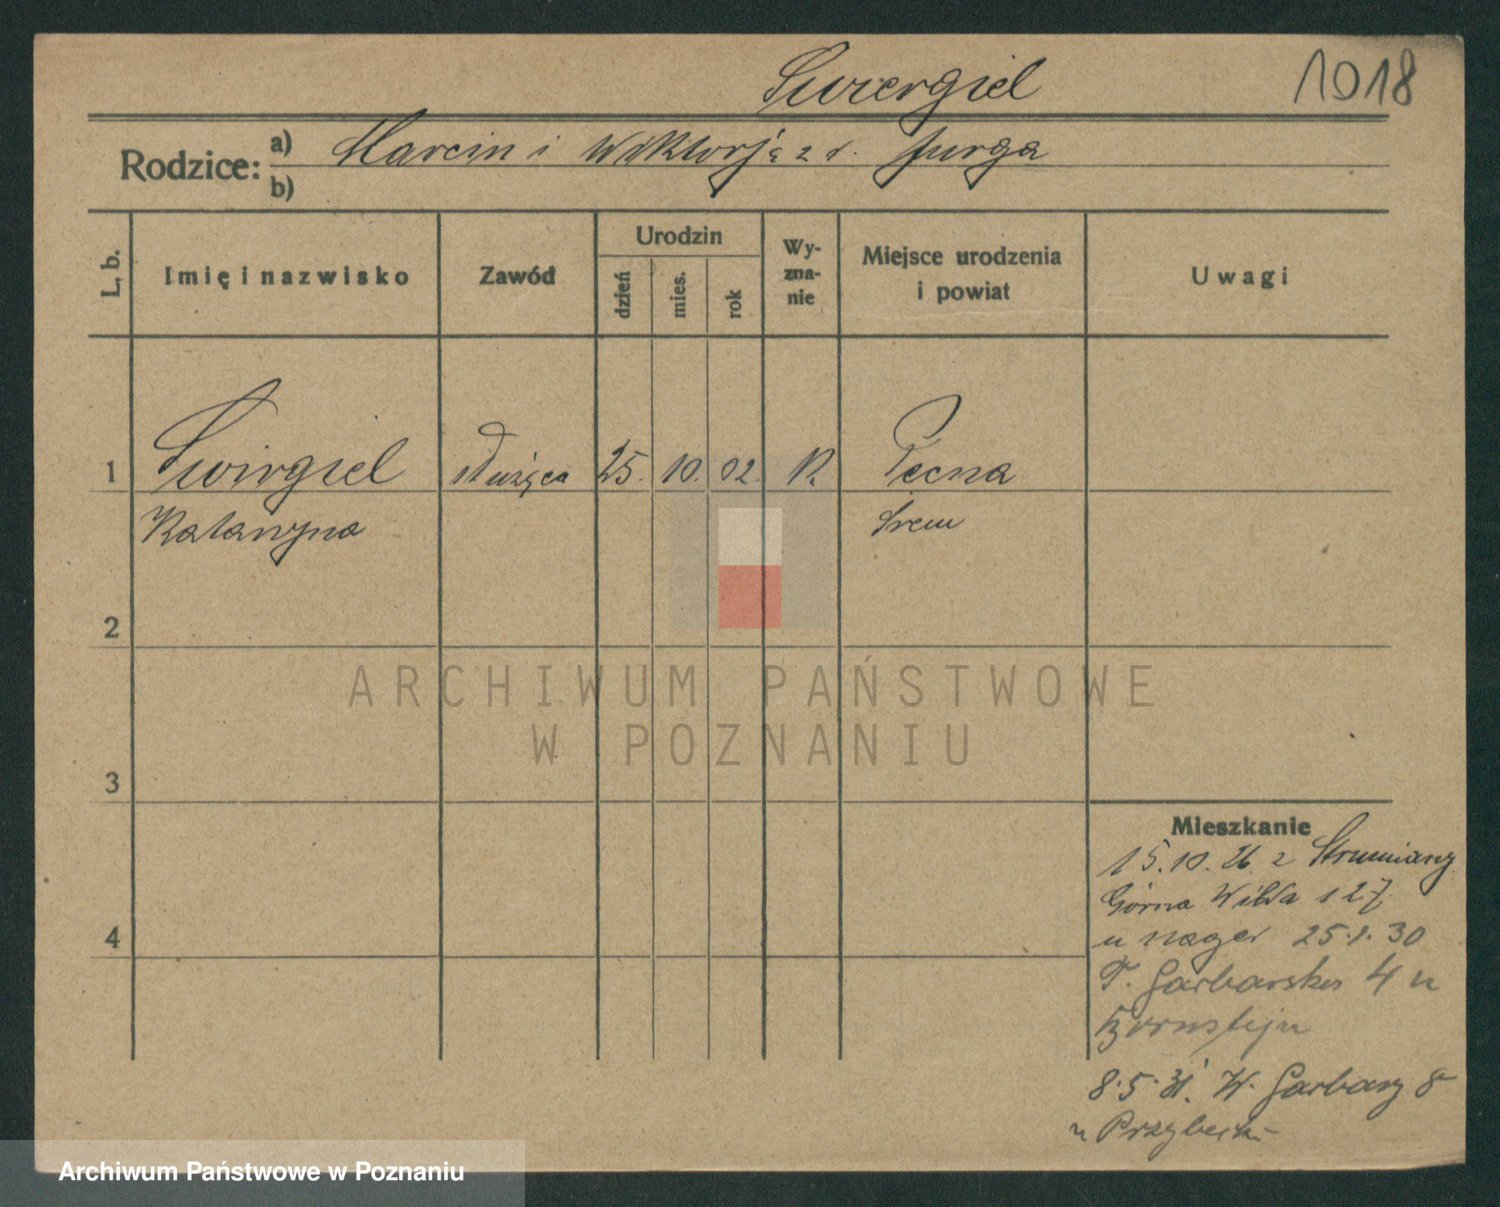 Swiergiel 1018
Rodzice: a) Marcin i Wiktorja z d. Jurga
b)
L. b. Imię i nazwisko Zawód Urodzin dzień mies. rok Wy-zna-nie Miejsce urodzenia i powiat Uwagi
1 Swirgiel służąca 25. 10. 02. R. Pecna
Katarzyna Śrem
2
3
4
Mieszkanie
15.10.26 z Strumiany
Górna Wilda 127
u Nager 25.1.30
T. Garbarska 4 u
Bornstejn
8.5.31. W. Garbary 8
u Przybecki
ARCHIWUM PAŃSTWOWE
W POZNANIU
Archiwum Państwowe w Poznaniu